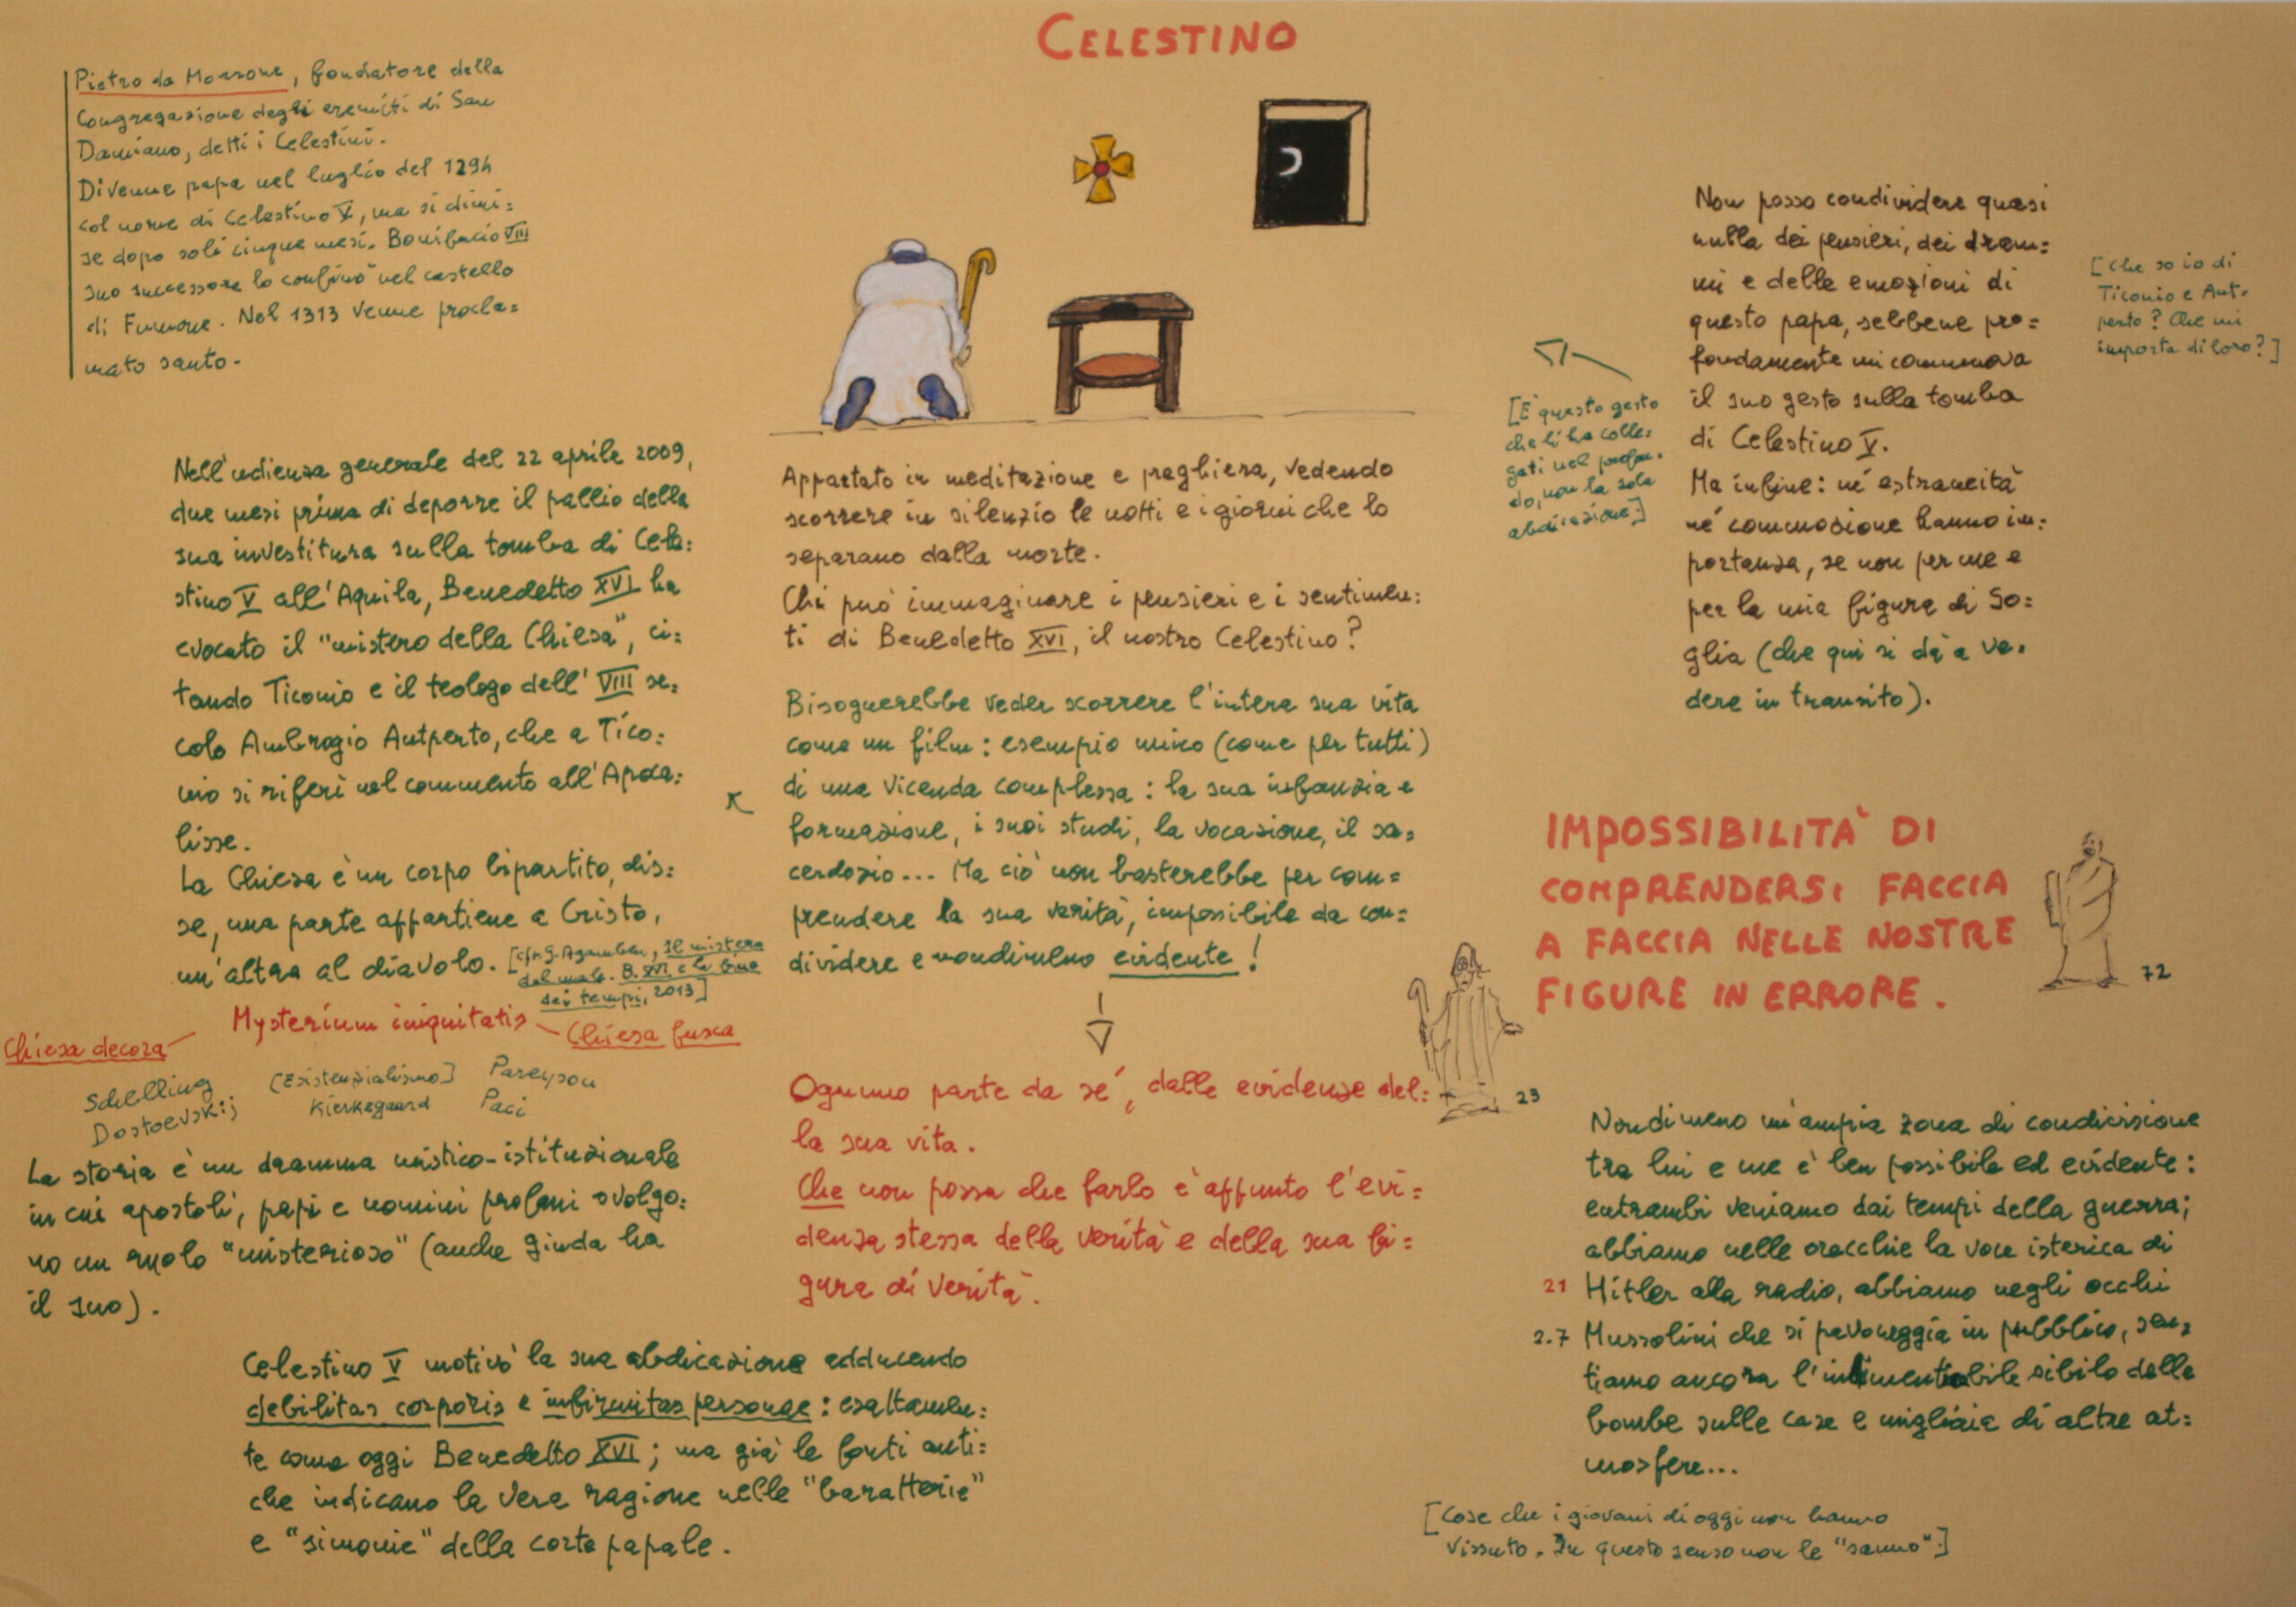 CELESTINO
Pietro da Morrone, fondatore della
Congregazione degli eremiti di San
Damiano, detti i Celestini.
Divenne papa nel luglio del 1294
col nome di Celestino V, ma si dimi=
se dopo soli cinque mesi. Bonifacio VIII
suo successore lo confinò nel castello
di Fumone. Nel 1313 venne procla=
mato santo.
Nell'udienza generale del 22 aprile 2009,
due mesi prima di deporre il pallio della
sua investitura sulla tomba di Cele=
stino V all'Aquila, Benedetto XVI ha
evocato il "mistero della Chiesa", ci=
tando Ticonio e il teologo dell'VIII se=
colo Ambrogio Autperto, che a Tico=
nio si riferì nel commento all'Apoca=
lisse.
La Chiesa è un corpo bipartito, dis=
se, una parte appartiene a Cristo,
un'altra al diavolo. [cfr. G. Agamben, Il mistero
del male. B. XVI e la fine
dei tempi, 2013]
Mysterium iniquitatis
Chiesa decora
Chiesa fusca
Schelling
Dostoevskij
[Esistenzialismo]
Kierkegaard
Pareyson
Paci
La storia è un dramma mistico-istituzionale
in cui apostoli, papi e uomini profani svolgo=
no un ruolo "misterioso" (anche Giuda ha
il suo).
Celestino V motivò la sua abdicazione adducendo
debilitas corporis e infirmitas personae: esattamen=
te come oggi Benedetto XVI; ma già le fonti anti=
che indicano la vera ragione nelle "baratterie"
e "simonie" della corte papale.
Appartato in meditazione e preghiera, vedendo
scorrere in silenzio le notti e i giorni che lo
separano dalla morte.
Chi può immaginare i pensieri e i sentimen=
ti di Benedetto XVI, il nostro Celestino?
Bisognerebbe veder scorrere l'intera sua vita
come un film: esempio unico (come per tutti)
di una vicenda complessa: la sua infanzia e
formazione, i suoi studi, la vocazione, il sa=
cerdozio... Ma ciò non basterebbe per com=
prendere la sua verità, impossibile da con=
dividere e nondimeno evidente!
Ognuno parte da sé, dalle evidenze del=
la sua vita.
Che non possa che farlo è appunto l'evi=
denza stessa della verità e della sua fi=
gura di verità.
[È questo gesto
che li ha colle=
gati nel profon=
do, non la sola
abdicazione.]
Non posso condividere quasi
nulla dei pensieri, dei dram=
mi e delle emozioni di
questo papa, sebbene pro=
fondamente mi commuova
il suo gesto sulla tomba
di Celestino V.
Ma infine: né estraneità
né commozione hanno im=
portanza, se non per me e
per la mia figura di So=
glia (che qui si dà a ve=
dere in transito).
[Che so io di
Ticonio e Aut=
perto? Che mi
importa di loro?]
IMPOSSIBILITÀ DI
COMPRENDERSI FACCIA
A FACCIA NELLE NOSTRE
FIGURE IN ERRORE.
72
23
Nondimeno un'ampia zona di condivisione
tra lui e me è ben possibile ed evidente:
entrambi veniamo dai tempi della guerra;
abbiamo nelle orecchie la voce isterica di
21 Hitler alla radio, abbiamo negli occhi
2.7 Mussolini che si pavoneggia in pubblico, sen=
tiamo ancora l'indimenticabile sibilo delle
bombe sulle case e migliaia di altre at=
mosfere...
[Cose che i giovani di oggi non hanno
vissuto. In questo senso non le "sanno".]